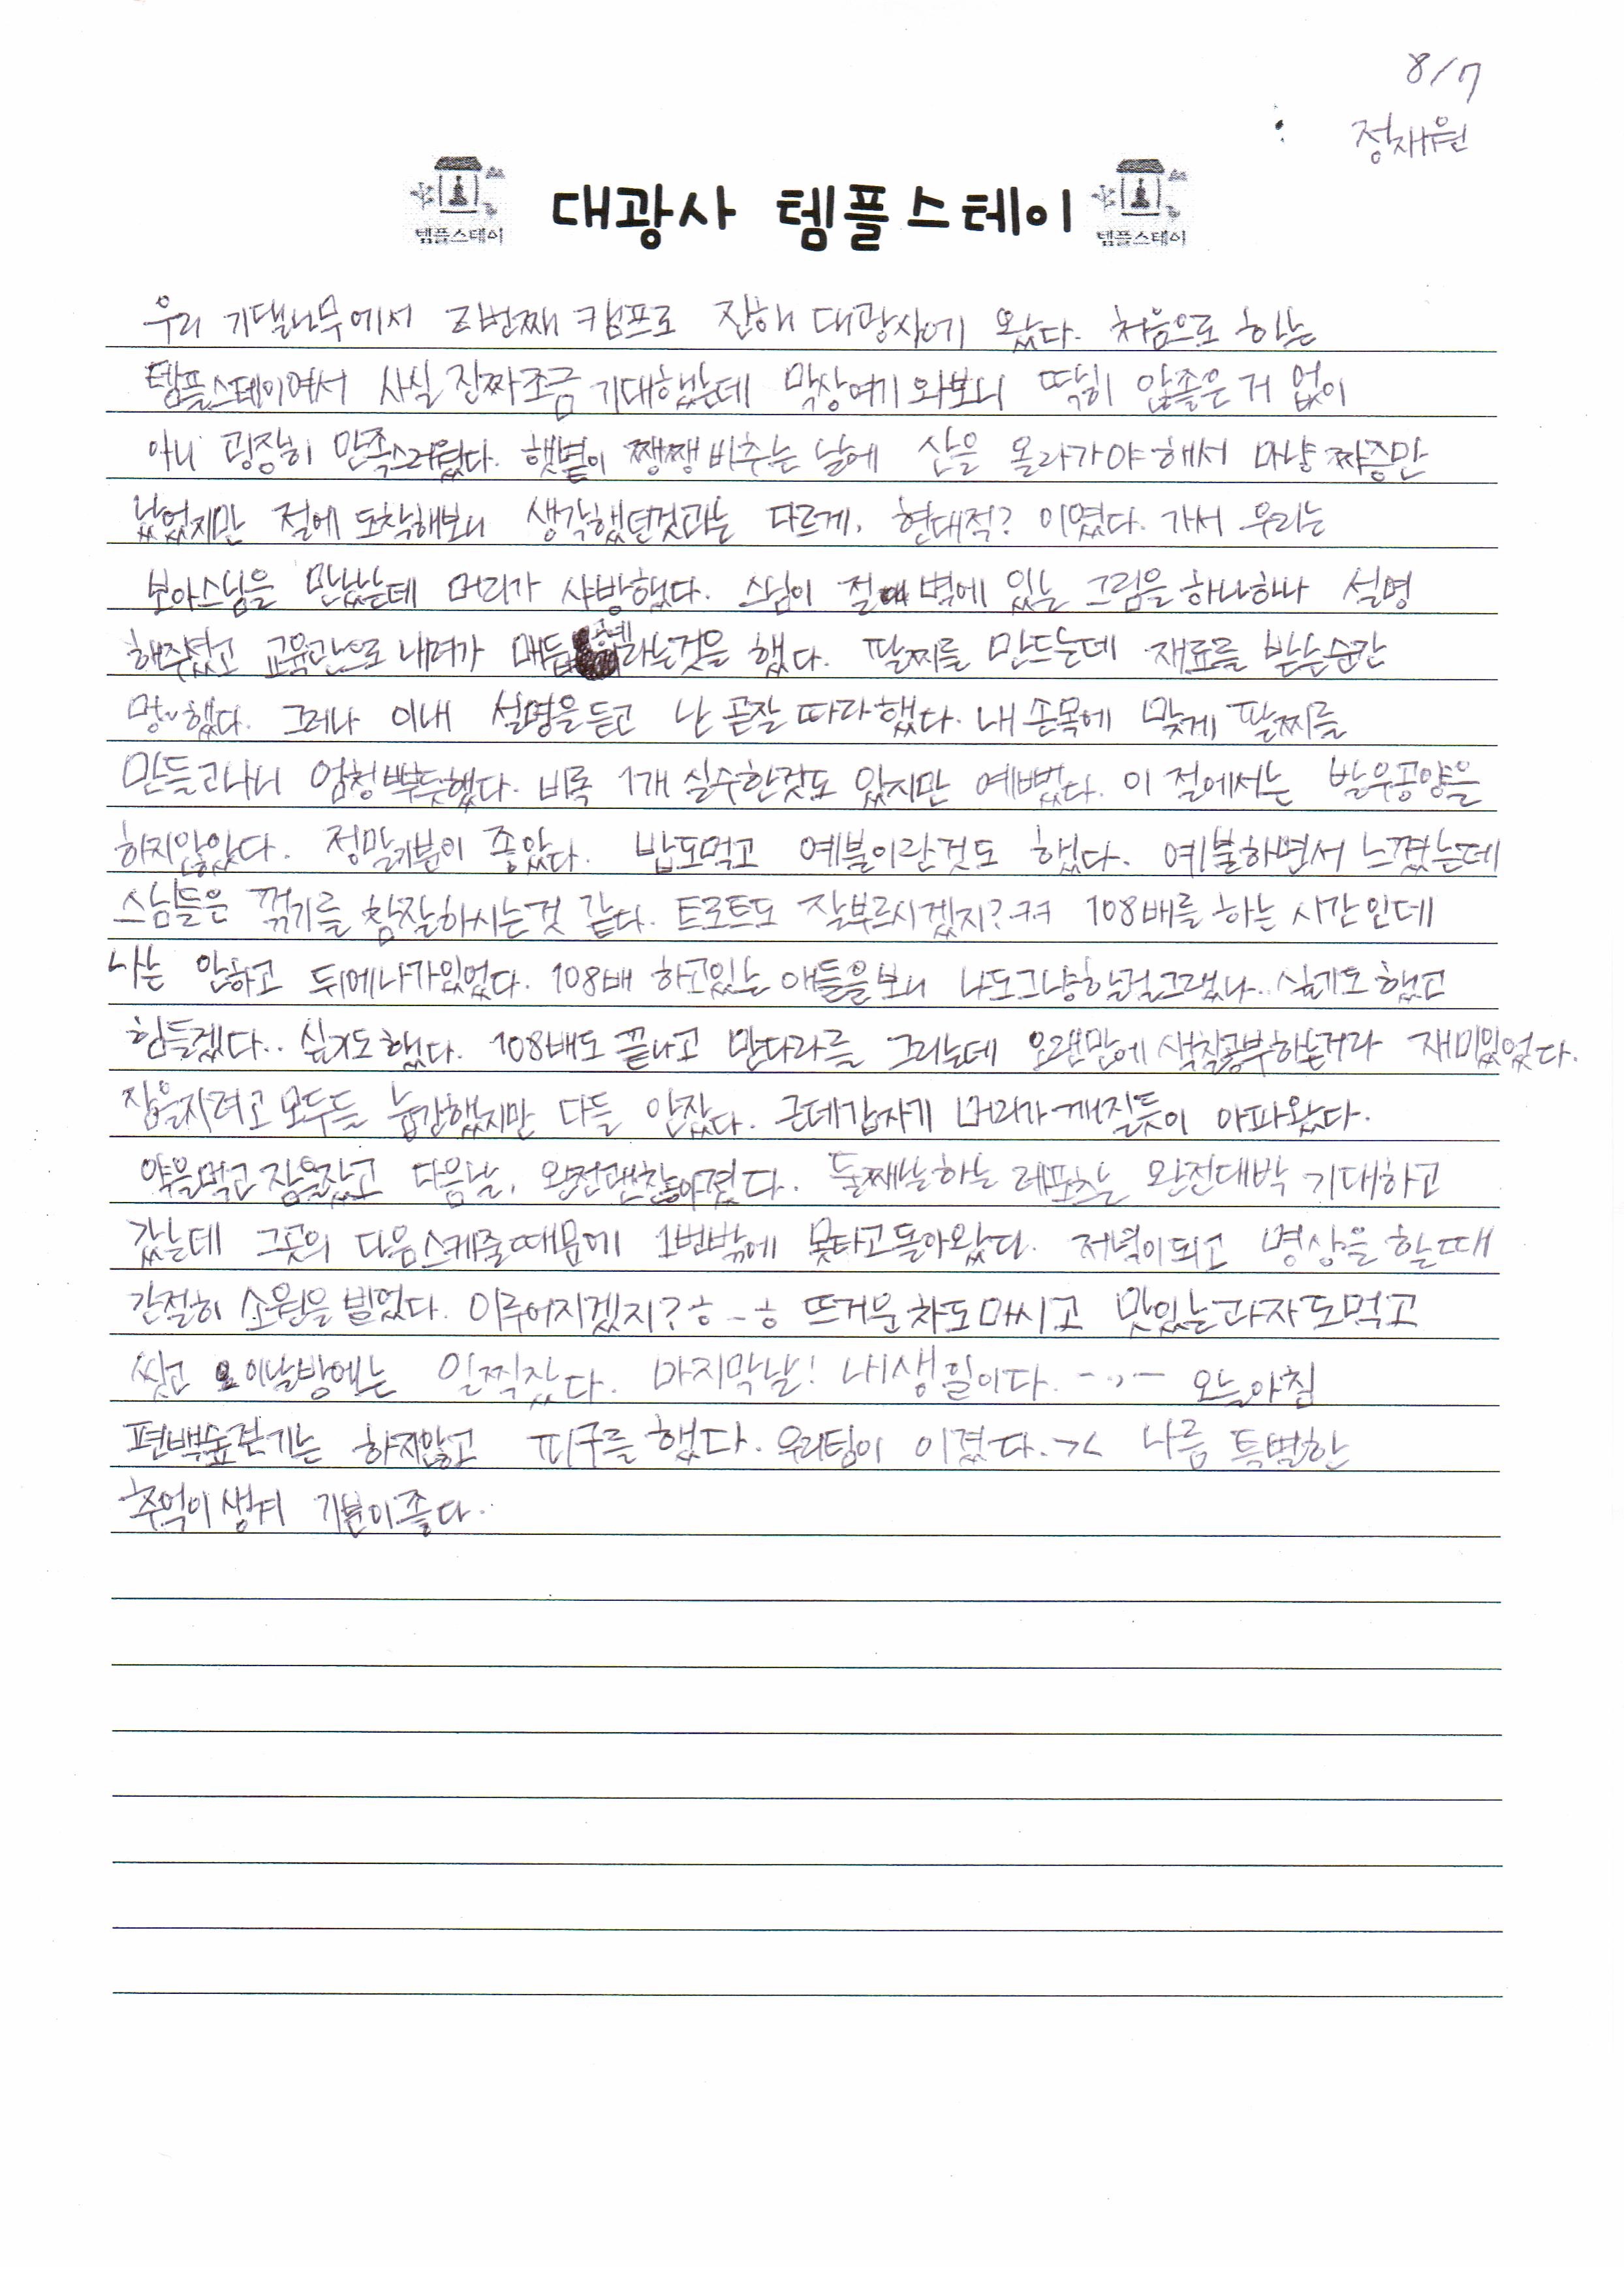 8/7
정재원
템플스테이 대광사 템플스테이 템플스테이
우리 기댈나무에서 2번째 캠프로 진해 대광사에 왔다. 처음으로 하는
템플스테이여서 사실 진짜조금 기대했는데 막상여기 와보니 딱히 않좋은 거 없이
아니 굉장히 만족스러웠다. 햇볕이 쨍쨍 비추는 날에 산을 올라가야 해서 마냥 짜증만
났었지만 절에 도착해보니 생각했던것과는 다르게, 현대적? 이였다. 가서 우리는
보아스님을 만났는데 머리가 샤방했다. 스님이 절 벽에 있는 그림을 하나하나 설명
해주셨고 교육관으로 내려가 매듭공예라는것을 했다. 팔찌를 만드는데 재료를 받는순간
멍~했다. 그러나 이내 설명을 듣고 난 곧잘 따라했다. 내 손목에 맞게 팔찌를
만들고나니 엄청뿌듯했다. 비록 1개 실수한것도 있지만 예뻤다. 이 절에서는 발우공양을
하지않았다. 정말기분이 좋았다. 밥도먹고 예불이란것도 했다. 예불하면서 느꼈는데
스님들은 꺾기를 참잘하시는것 같다. 트로트도 잘부르시겠지?ㅋㅋ 108배를 하는 시간인데
나는 안하고 뒤에나가있었다. 108배 하고있는 애들을보니 나도그냥할걸그랬나.. 싶기도 했고
힘들겠다.. 싶기도했다. 108배도 끝나고 만다라를 그리는데 오랜만에 색칠공부하는거라 재미있었다.
잠을자려고 모두들 눕긴했지만 다들 안잤다. 근데갑자기 머리가 깨질듯이 아파왔다.
약을먹고 잠을잤고 다음날, 완전괜찮아졌다. 둘째날하는 레포츠는 완전대박 기대하고
갔는데 그곳의 다음스케줄때문에 1번밖에 못타고돌아왔다. 저녁이되고 명상을 할때
간절히 소원을 빌었다. 이루어지겠지?ㅎ_ㅎ 뜨거운차도마시고 맛있는과자도먹고
씻고 이날밤에는 일찍잤다. 마지막날! 내생일이다. -.,- 오늘아침
편백숲걷기는 하지않고 피구를 했다. 우리팀이 이겼다.>< 나름 특별한
추억이생겨 기분이좋다.